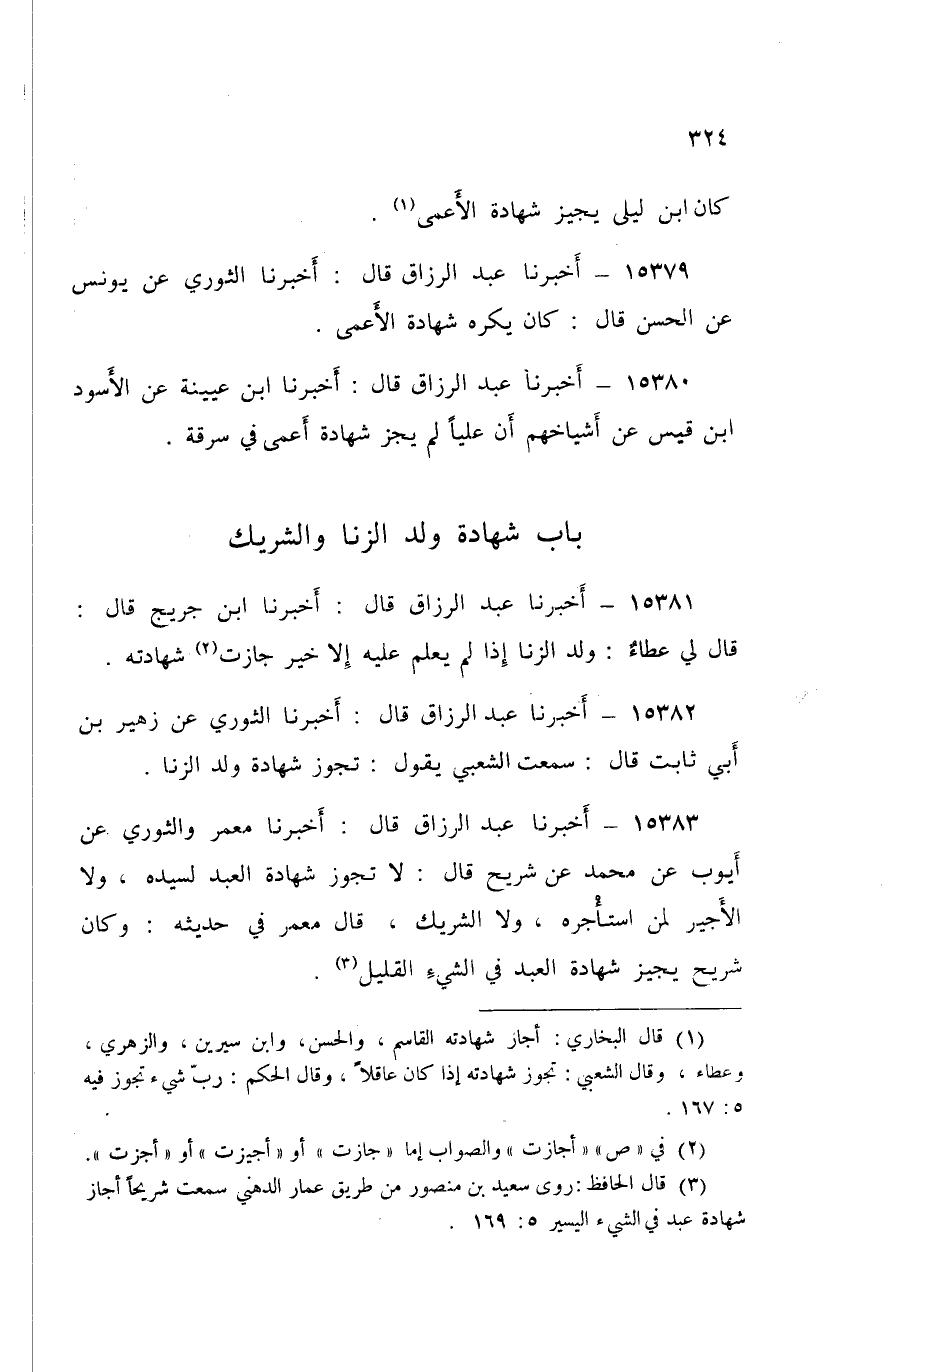 ٣٢٤
كان ابن ليلى يجيز شهادة الأَعمى(١) .
١٥٣٧٩ – أَخبرنا عبد الرزاق قال : أَخبرنا الثوري عن يونس
عن الحسن قال : كان يكره شهادة الأَعمى .
١٥٣٨٠ – أَخبرنا عبد الرزاق قال : أَخبرنا ابن عيينة عن الأَسود
ابن قيس عن أَشياخهم أَن علياً لم يجز شهادة أَعمى في سرقة .
باب شهادة ولد الزنا والشريك
١٥٣٨١ – أَخبرنا عبد الرزاق قال : أَخبرنا ابن جريج قال :
قال لي عطاءٌ : ولد الزنا إذا لم يعلم عليه إلا خير جازت(٢) شهادته .
١٥٣٨٢ – أَخبرنا عبد الرزاق قال : أَخبرنا الثوري عن زهير بن
أَبي ثابت قال : سمعت الشعبي يقول : تجوز شهادة ولد الزنا .
١٥٣٨٣ – أَخبرنا عبد الرزاق قال : أَخبرنا معمر والثوري عن
أَيوب عن محمد عن شريح قال : لا تجوز شهادة العبد لسيده ، ولا
الأَجير لمن استأْجره ، ولا الشريك ، قال معمر في حديثه : وكان
شريح يجيز شهادة العبد في الشيءِ القليل(٣) .
(١) قال البخاري : أجاز شهادته القاسم ، والحسن، وابن سيرين ، والزهري ،
وعطاء ، وقال الشعبي : تجوز شهادته إذا كان عاقلاً ، وقال الحكم : ربّ شيء تجوز فيه
٥ : ١٦٧ .
(٢) في « ص » « أجازت » والصواب إما « جازت » أو « أجيزت » أو « أجزت ».
(٣) قال الحافظ : روى سعيد بن منصور من طريق عمار الدهني سمعت شريحاً أجاز
شهادة عبد في الشيء اليسير ٥ : ١٦٩ .